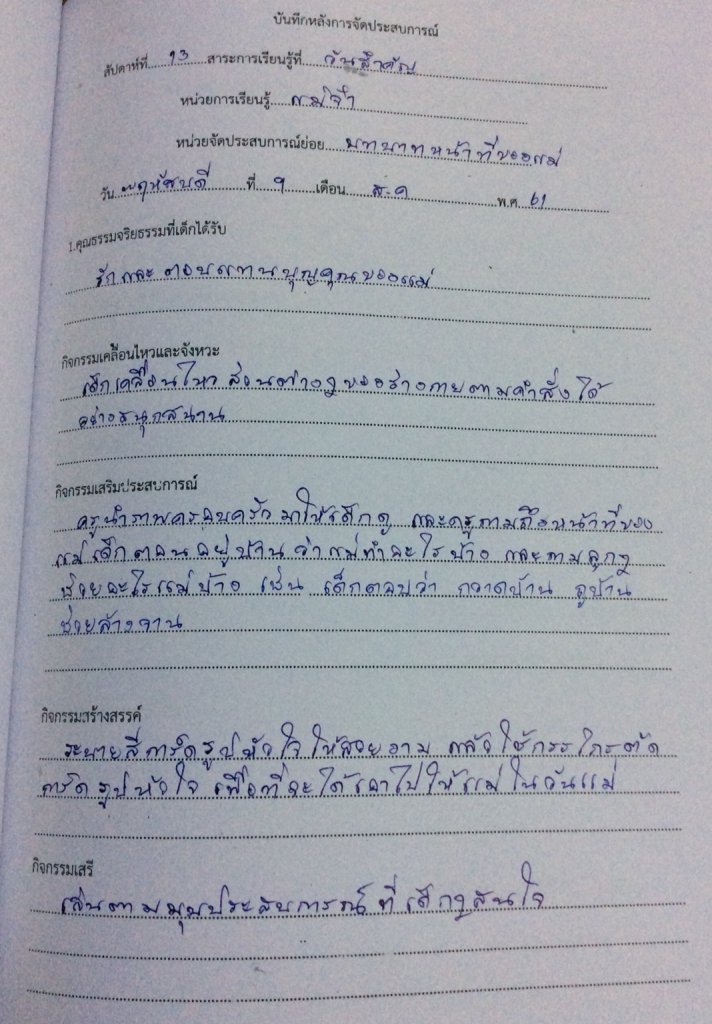 บันทึกหลังการจัดประสบการณ์
สัปดาห์ที่ 13 สาระการเรียนรู้ที่ วันสำคัญ
หน่วยการเรียนรู้ แม่จ๋า
หน่วยจัดประสบการณ์ย่อย บทบาทหน้าที่ของแม่
วัน พฤหัสบดี ที่ 9 เดือน ส.ค พ.ศ. 61
1.คุณธรรมจริยธรรมที่เด็กได้รับ
รักและตอบแทนบุญคุณของแม่
กิจกรรมเคลื่อนไหวและจังหวะ
เด็กเคลื่อนไหวส่วนต่างๆของร่างกายตามคำสั่งได้
อย่างสนุกสนาน
กิจกรรมเสริมประสบการณ์
ครูนำภาพครอบครัวมาให้เด็กดู และครูถามถึงหน้าที่ของ
แม่เด็กตอนอยู่บ้านว่าแม่ทำอะไรบ้าง และถามลูกๆ
ช่วยอะไรแม่บ้าง เช่น เด็กตอบว่า กวาดบ้าน ถูบ้าน
ช่วยล้างจาน
กิจกรรมสร้างสรรค์
ระบายสีการ์ดรูปหัวใจให้สวยงาม แล้วใช้กรรไกรตัด
การ์ดรูปหัวใจ เพื่อที่จะได้เอาไปให้แม่ในวันแม่
กิจกรรมเสรี
เล่นตามมุมประสบการณ์ที่เด็กๆสนใจ